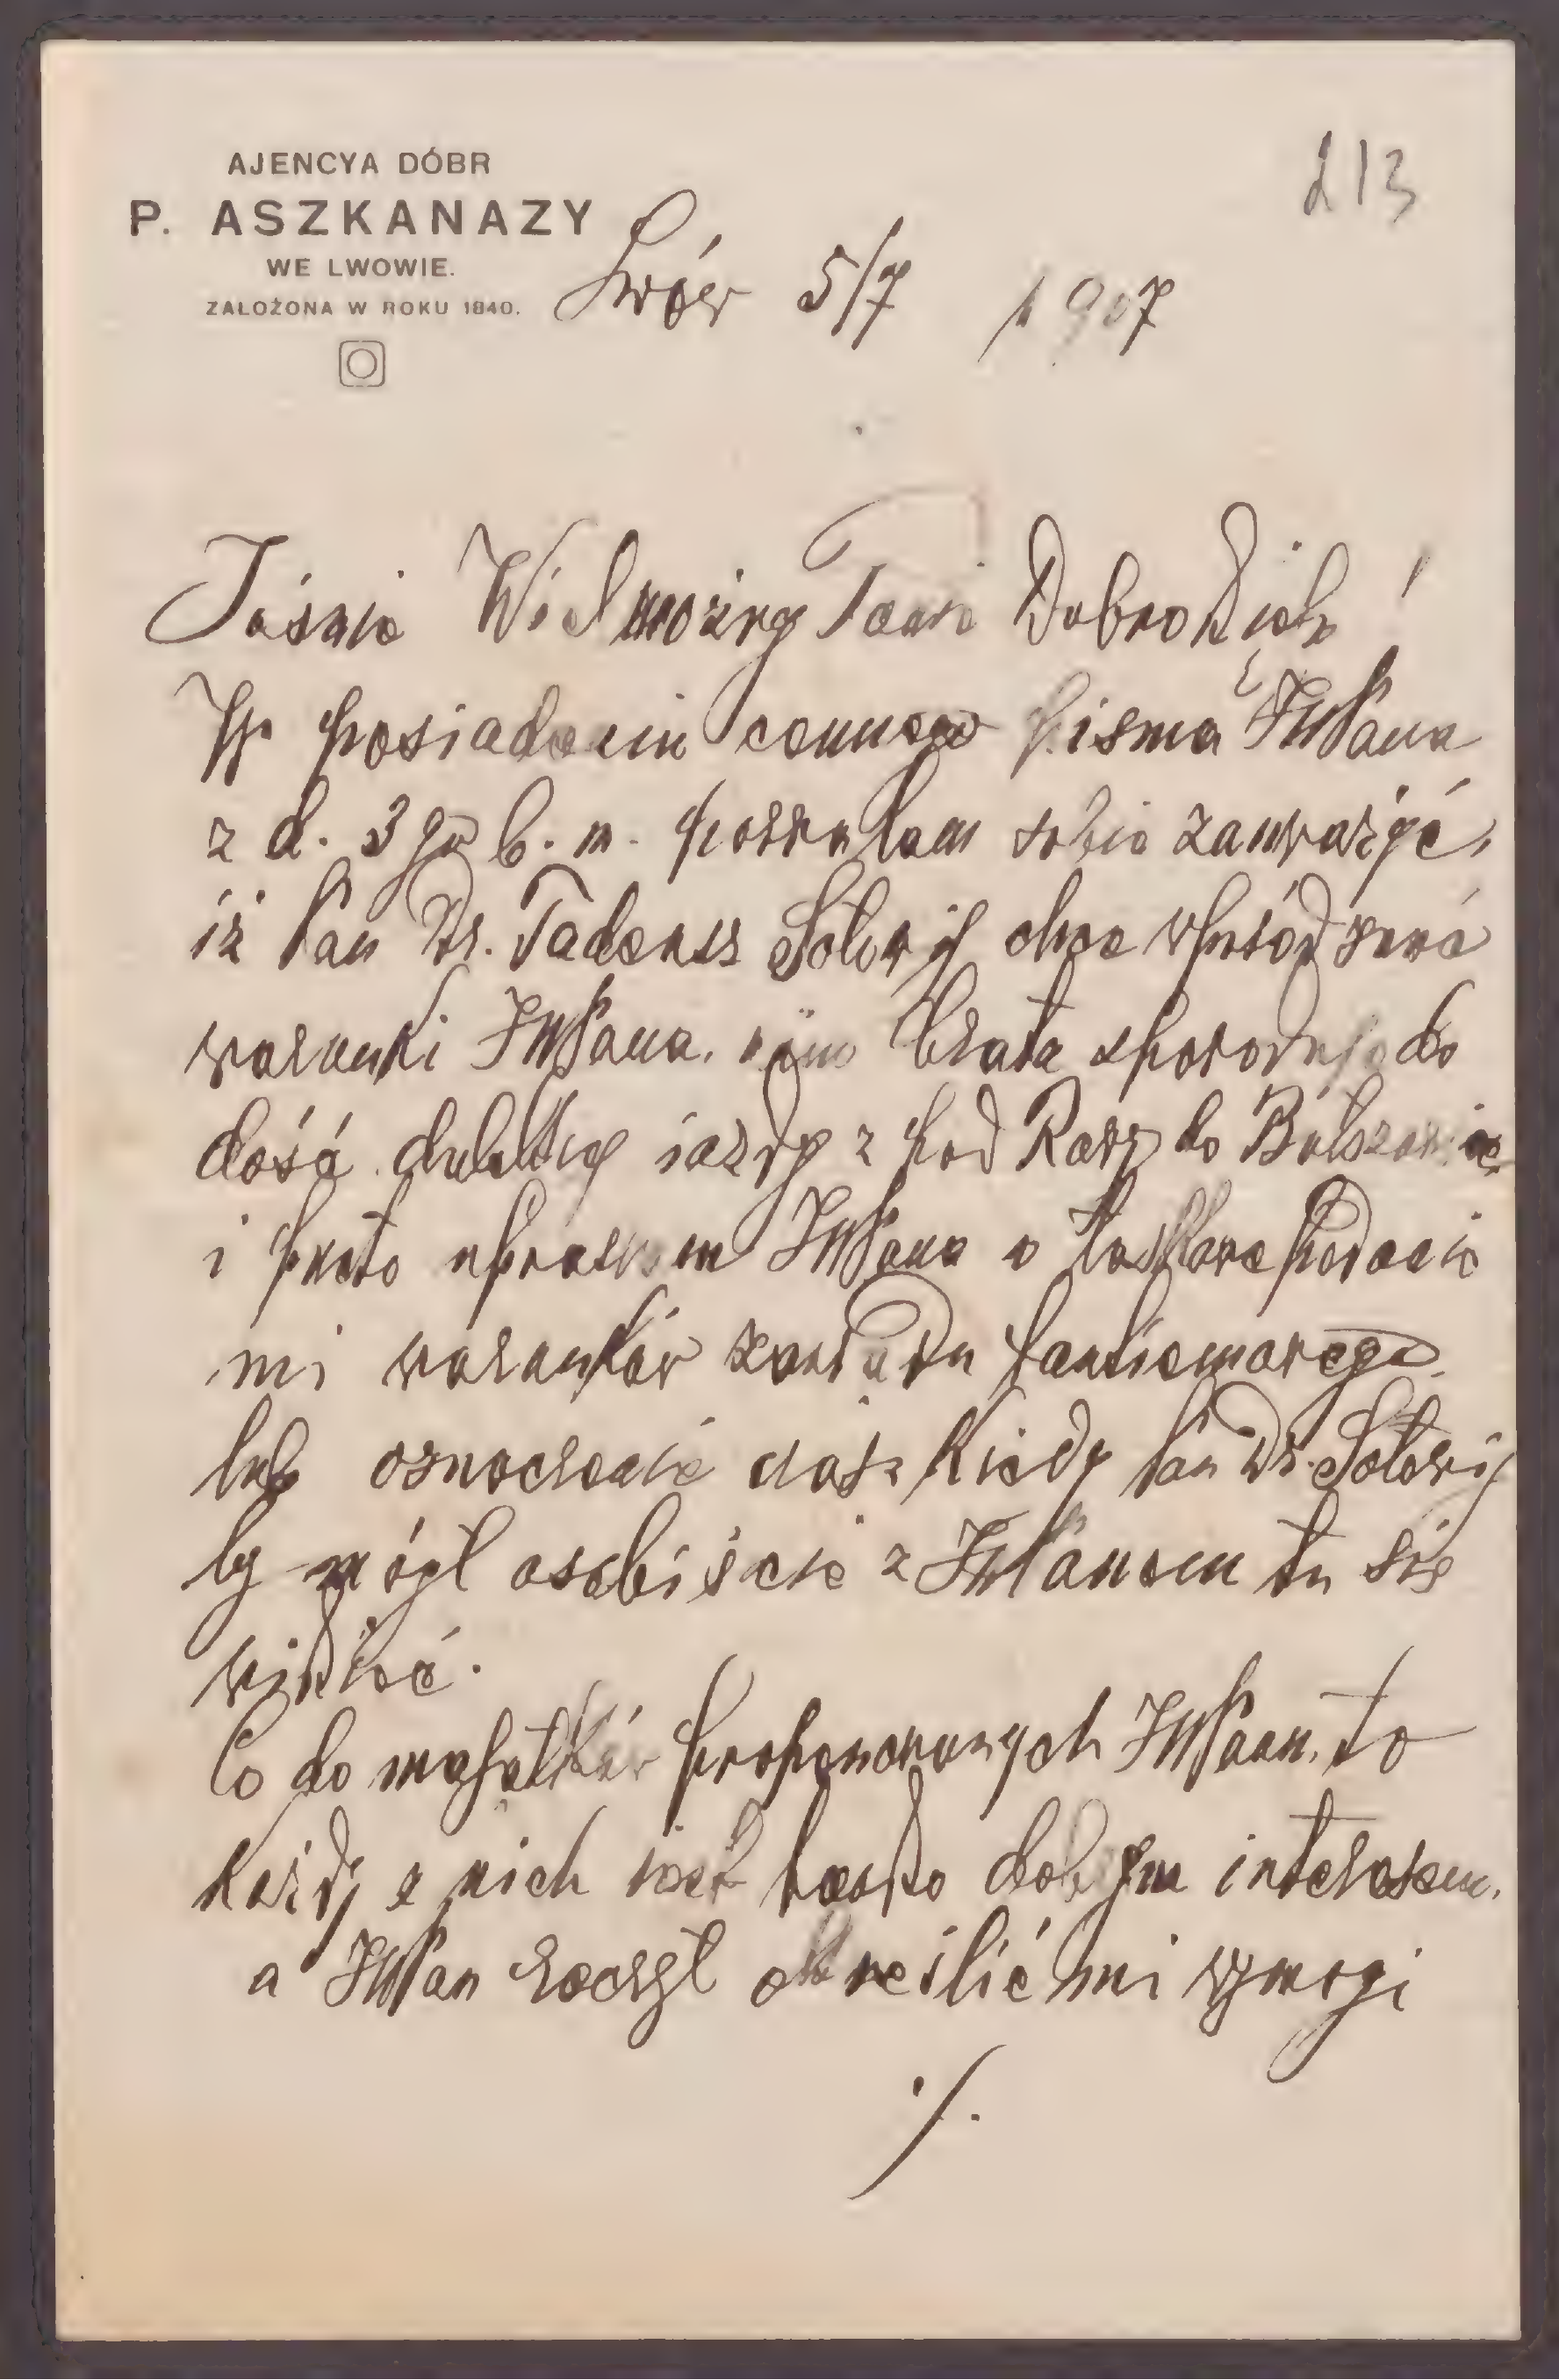 AJENCYA DÓBR
P. ASZKANAZY
WE LWOWIE.
ZAŁOŻONA W ROKU 1840.
213
Lwów 5/7 1907
Jaśnie Wielmożny Panie Dobrodzieju!
W posiadaniu cennego pisma JWPana
z d. 3go b. m. pozwalam sobie zauważyć,
iż Pan Dr. Tadeusz Sołowij chce wprzód znać
warunki JWPana, nim brata spowoduje do
dość dalekiej jazdy z pod Rawy do Bolszowiec
i przeto upraszam JWPana o łaskawe podanie
mi warunków zarządu tantiemowego,
lub oznaczenie czasu kiedy Pan Dr. Sołowij
by mógł osobiście z JWPanem tu się
widzieć.
Co do majątków proponowanych JWPanu, to
każdy z nich jest bardzo dobrym interesem,
a JWPan raczył określić mi wymogi
./.